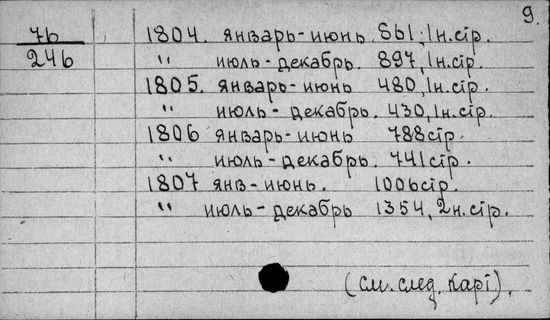 9.
7б 1804. январь-июнь 861, 1н.стр.
24б " июль-декабрь. 897, 1н.стр.
1805. январь-июнь 480, 1н.стр.
" июль-декабрь. 430, 1н.стр.
1806 январь-июнь 788стр.
" июль-декабрь. 741стр.
1807 янв-июнь. 1006стр.
" июль-декабрь 1354, 2н.стр.
(см. след. карт).